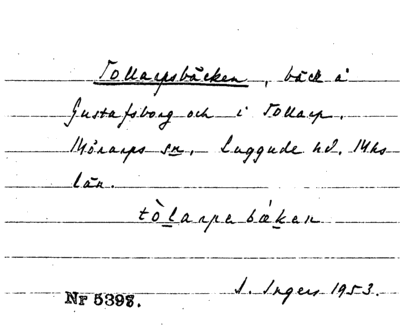 Tollarpsbäcken, bäck å
Gustafsborg och i Tollarp.
Mörarps sn. Luggude hd. Mhs
län.
tòlarpsbǽken
I. Ingers 1953.
Nr 5398.